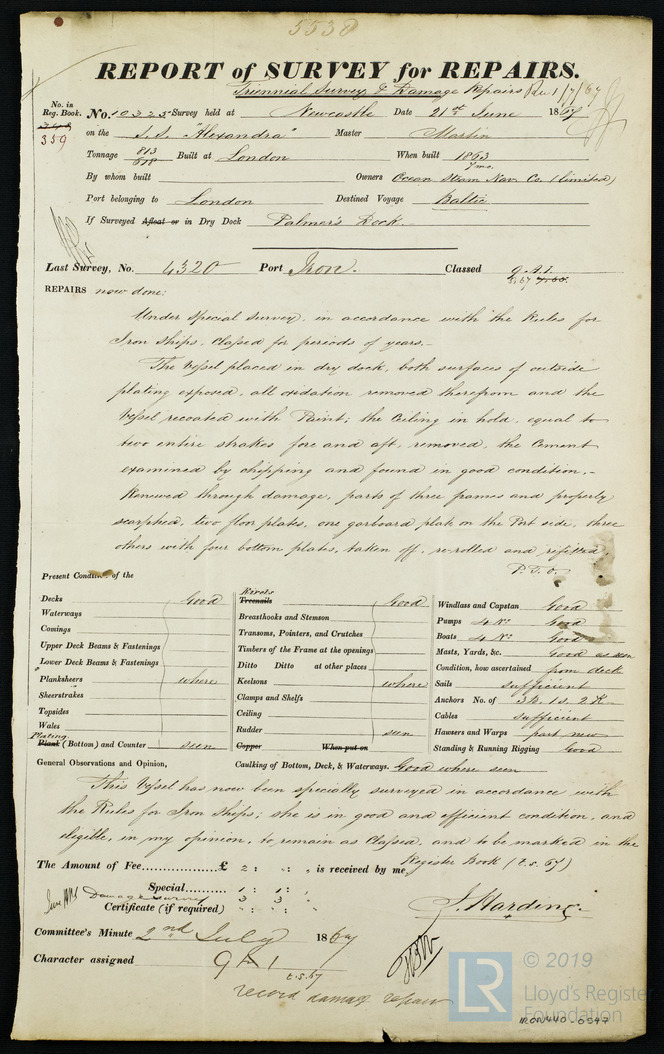 5538
REPORT of SURVEY for REPAIRS.
Triennial Survey & Damage Repairs Rec 1/7/67
No. in Reg. Book. No. 10325 Survey held at Newcastle Date 21st June 1867
359 on the S.S. "Alexandra" Master Martin
Tonnage 813/618 Built at London When built 1863
By whom built 7mo. Owners Ocean Steam Nav. Co. (limited)
Port belonging to London Destined Voyage Baltic
If Surveyed Afloat or in Dry Dock Palmer's Dock.
Last Survey, No. 4320 Port Iron. Classed 9.A.1.
REPAIRS now done:
Under Special Survey, in accordance with the Rules for
Iron Ships, Classed for periods of years.—
The Vessel placed in dry dock, both surfaces of outside
plating exposed, all oxidation removed therefrom and the
Vessel recoated with Paint; the Ceiling in hold, equal to
two entire strakes fore and aft, removed, the Cement
examined by chipping and found in good condition.—
Renewed through damage, parts of three frames and properly
scarphed, two floor plates, one garboard plate on the Port side, three
others with four bottom plates, taken off, re-rolled and refitted,
P.T.O.
Present Condition of the
Decks Good
Waterways
Comings
Upper Deck Beams & Fastenings
Lower Deck Beams & Fastenings
Planksheers where
Sheerstrakes
Topsides
Wales
Plating
Plank (Bottom) and Counter seen
Rivets
Treenails Good
Breasthooks and Stemson
Transoms, Pointers, and Crutches
Timbers of the Frame at the openings
Ditto Ditto at other places
Keelsons where
Clamps and Shelfs
Ceiling
Rudder seen
Copper When put on
Windlass and Capstan Good
Pumps 4 No. Good
Boats 4 No. Good
Masts, Yards, &c. Good as seen
Condition, how ascertained from deck
Sails sufficient
Anchors No. of 3B. 1S. 2K.
Cables sufficient
Hawsers and Warps part new
Standing & Running Rigging Good
General Observations and Opinion, Caulking of Bottom, Deck, & Waterways. Good where seen
This Vessel has now been specially surveyed in accordance with
the Rules for Iron Ships; she is in good and efficient condition, and
eligible, in my opinion, to remain as Classed, and to be marked in the
Register Book (t.s. 67)
The Amount of Fee £ 2 : : , is received by me,
Special 1 : 1 :
Damage Survey 3 3
Certificate (if required)
J. Harding.
Committee's Minute 2nd July 1867
Character assigned 9 A 1
t.s.67
record damage repairs
LR © 2019
Lloyd's Register
Foundation
IRON440-0547